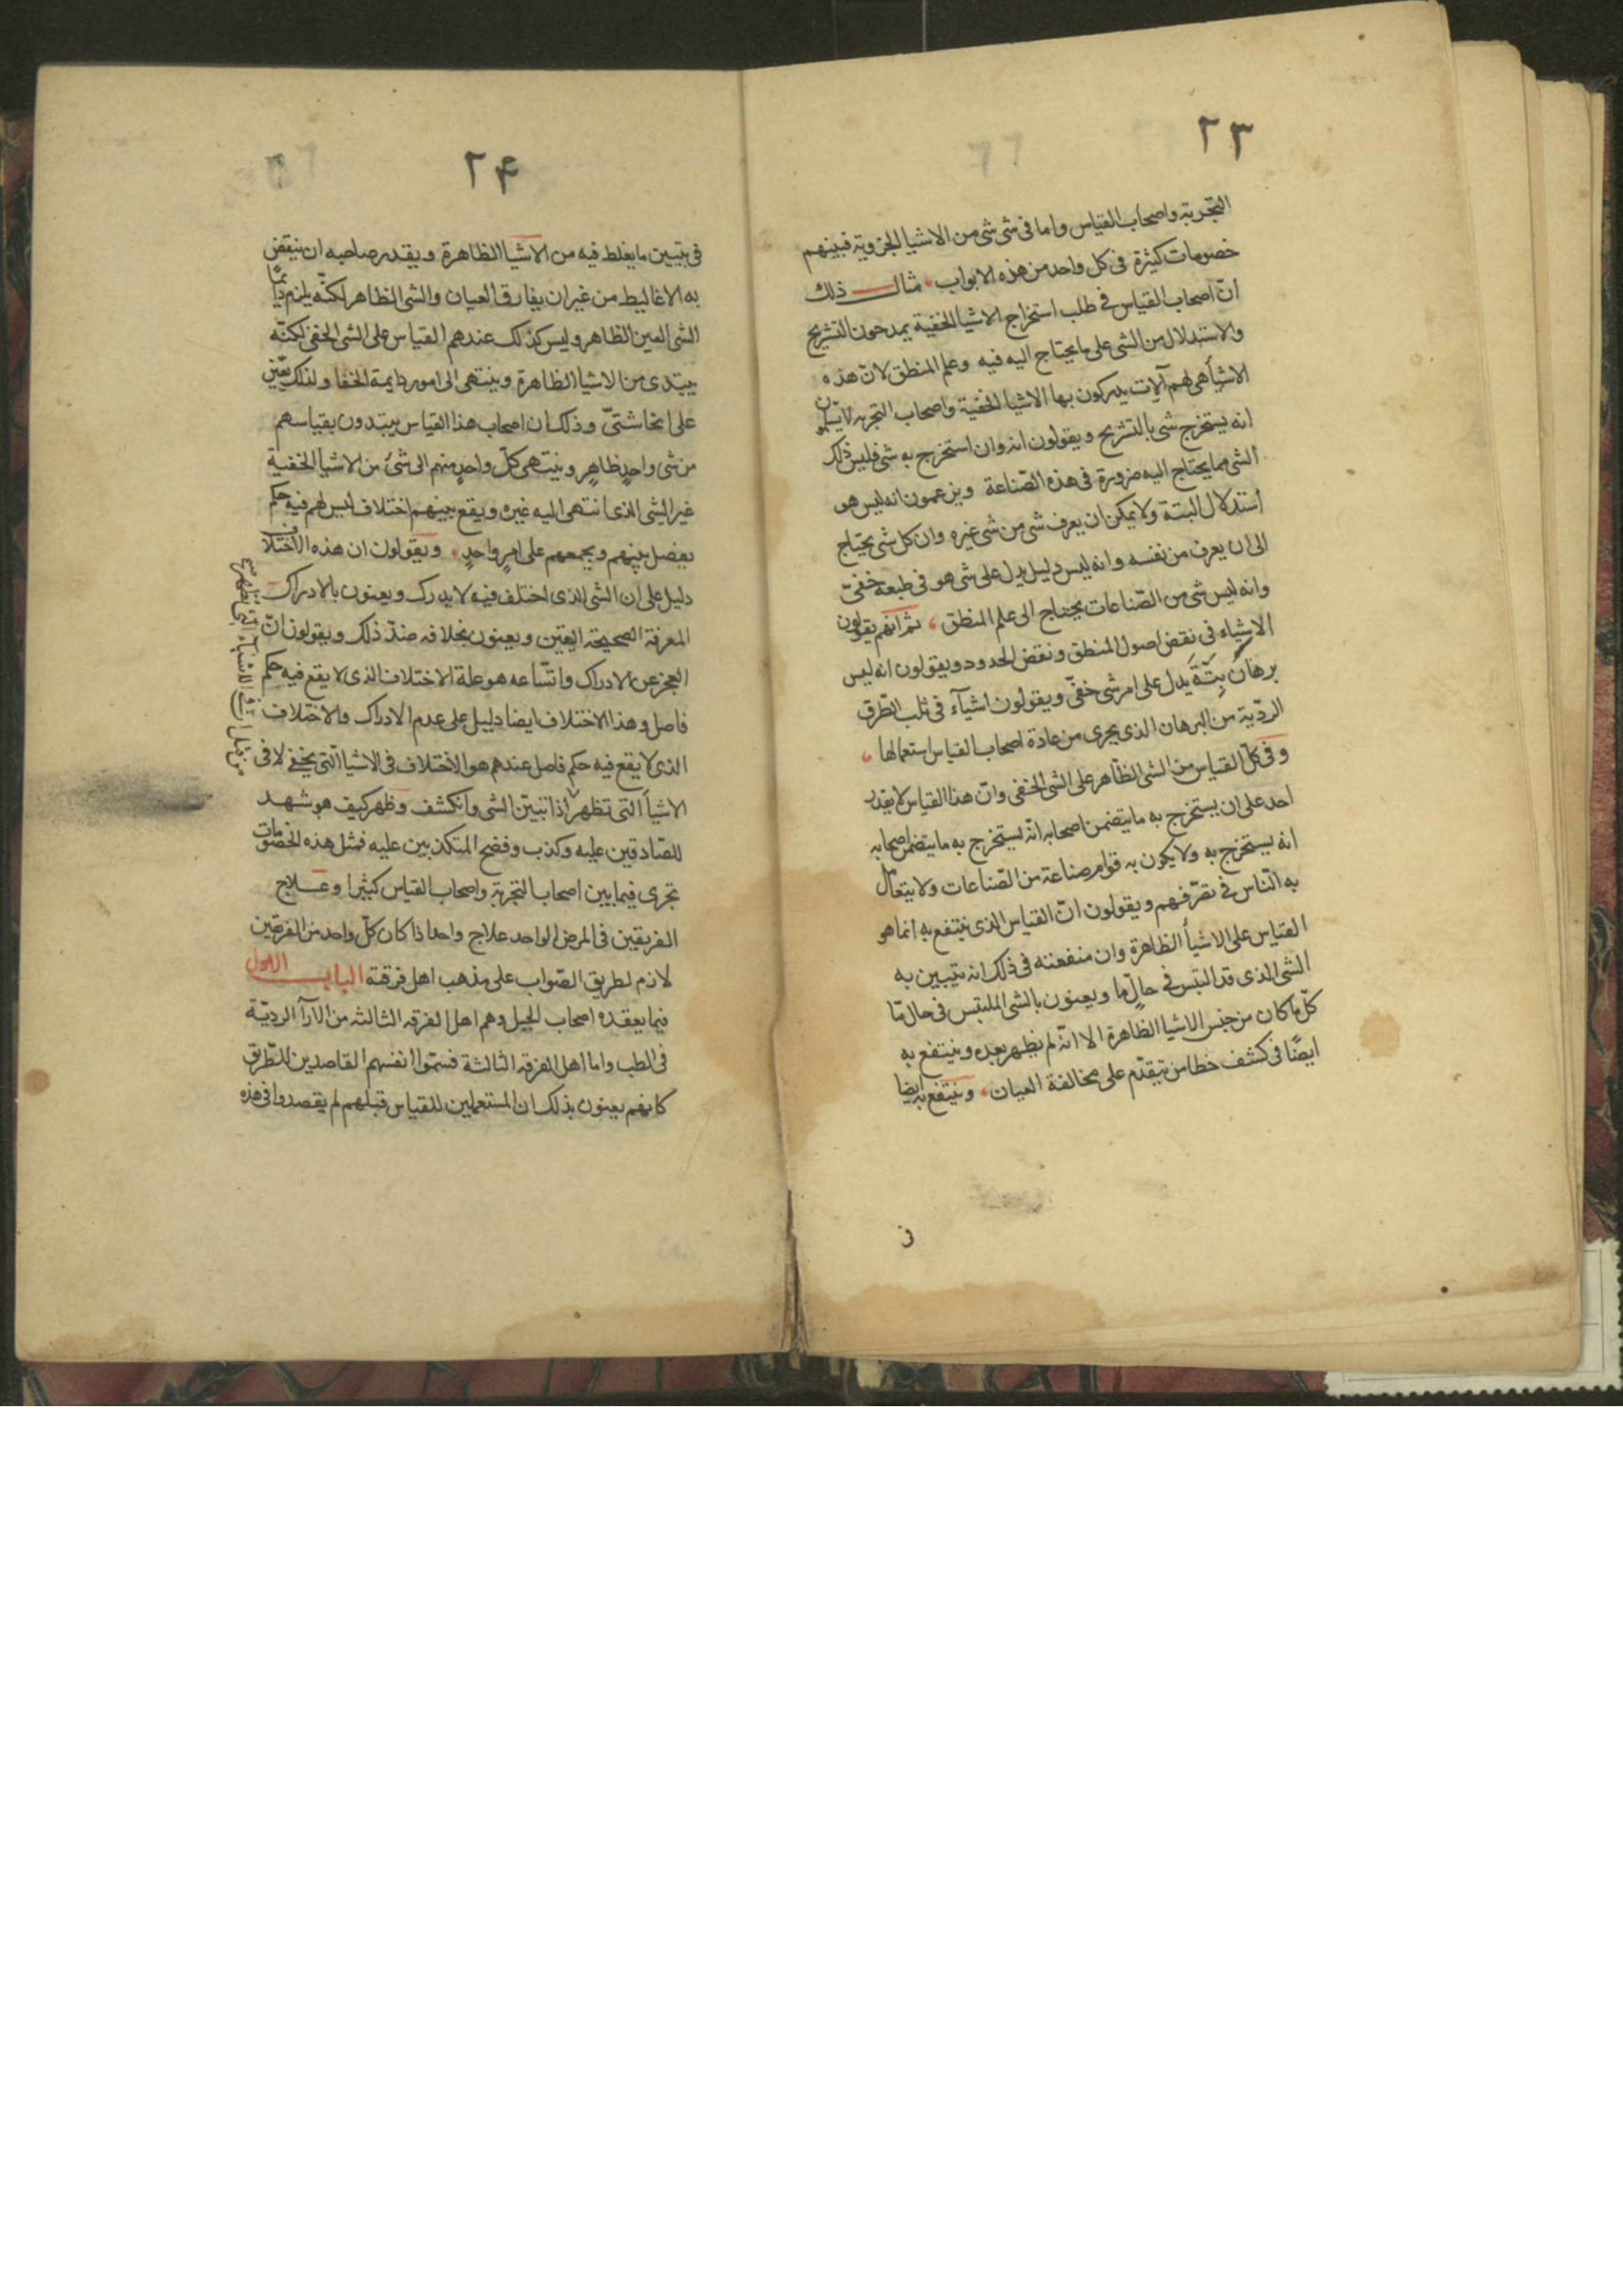 ٢٣
التجربة واصحاب القياس واما فى شى شى من الاشيا الجزوية فبينهم
خصومات كثيرة فى كل واحد من هذه الابواب مثال ذلك
انّ اصحاب القياس فى طلب استخراج الاشيا الخفية يمدحون التشريح
والاستدلال من الشى على ما يحتاج اليه فيه وعلم المنطق لانّ هذه
الاشيأ هى لهم آلات يدركون بها الاشيا الخفية واصحاب التجربه لا يسلمون
انه يستخرج شى بالتشريح ويقولون انه وان استخرج به شى فليس ذلك
الشى مما يحتاج اليه ضرورة فى هذه الصّناعة ويزعمون انه ليس هو
استدلال البتة ولا يمكن ان يعرف شى من شى غيره وان كل شى يحتاج
الى ان يعرف من نفسه وانه ليس دليل يدل على شى هو فى طبعه خفىّ
وانه ليس شى من الصّناعات يحتاج الى علم المنطق ثم انهم يقولون
الاشياء فى نقض اصول المنطق ونقض الحدود ويقولون انه ليس
برهان بتّة يدل على امر شى خفىّ ويقولون اشيآء فى ثلب الطّرق
الرديّة من البرهان الذى يجرى من عادة اصحاب القياس استعمالها
وفى كلّ القياس من الشى الظاهر على الشى الخفى وانّ هذا القياس لا يقدر
احد على ان يستخرج به ما يتضمن اصحابه انّه يستخرج به ما يتضمن اصحابه
انه يستخرج به ولا يكون به قوام صناعة من الصّناعات ولا يتعامل
به النّاس فى تصرّفهم ويقولون انّ القياس الذى ينتفع به انما هو
القياس على الاشيأ الظاهرة وان منفعته فى ذلك انه يتبيين به
الشى الذى قد التبس فى حالٍ ما ويعنون بالشى الملتبس فى حال مّا
كلّ ما كان من جنس الاشيا الظاهرة الا انّه لم يظهر بعد وينتفع به
ايضًا فى كشف خطا من يتقدّم على مخالفة العيان وينتفع به ايضا
٢۴
فى تبيين ما يغلط فيه من الاشيا الظاهرة ويقدر صاحبه ان ينقض
به الاغاليط من غير ان يفارق العيان والشى الظاهر لكنّه يلزم دايمًا
الشى البين الظاهر وليس كذلك عندهم القياس على الشى الخفى لكنّه
يبتدى من الاشيا الظاهرة وينتهى الى امور دايمة الخفا ولذلك
على انحا شتىّ وذلك ان اصحاب هذا القياس يبتدون بقياسهم
من شى واحدٍ ظاهرٍ وينتهى كلّ واحدٍ منهم الى شئ من الاشيأ الخفية
غير الشى الذى انتهى اليه غيره ويقع بينهم اختلاف ليس لهم فيه حكم
يفصل بينهم ويجمعهم على امرٍ واحدٍ ويقولون ان هذه الاختلاف
دليل على ان الشى الذى اختلف فيه لا يدرك ويعنون بالادراك
المعرفة الصحيحة اليقين ويعنون بخلافه ضدّ ذلك ويقولون انّ
العجز عن الادراك واتّساعه هو علة الاختلاف الذى لا يقع فيه حكم
فاصل وهذا الاختلاف ايضا دليل على عدم الادراك والاختلاف
الذى لا يقع فيه حكم فاصل عندهم هو الاختلاف فى الاشيا الّتى يخفى لا فى
الاشيأ التى تظهر اذا تبيّن الشى وانكشف وظهر كيف هو شهد
للصّادقين عليه وكذب وفضح المتكذبين عليه فمثل هذه الخصومات
تجرى فيما بين اصحاب التجربة واصحاب القياس كثيرا وعلاج
الفريقين فى المرض الواحد علاج واحد اذا كان كلّ واحد من الفريقين
لازم لطريق الصّواب على مذهب اهل فرقته الباب الاول
فيما يعقده اصحاب الحيل وهم اهل الفرقه الثالثه من الآرآ الرديّة
فى الطب واما اهل الفرقه الثالثة فسمّوا انفسهم القاصدين للطّريق
كانهم يعنون بذلك ان المستعملين للقياس قبلهم لم يقصدوا فى هذه
من قبل ان